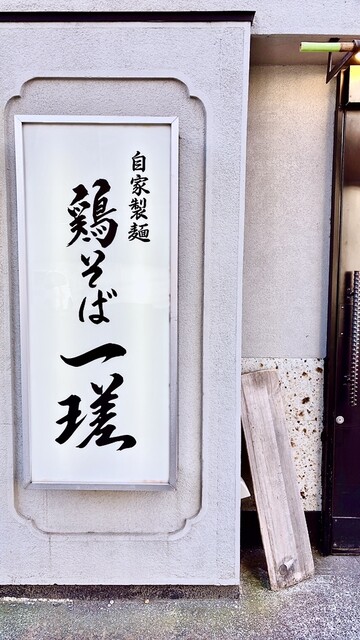 自家製麺
鶏そば一瑳